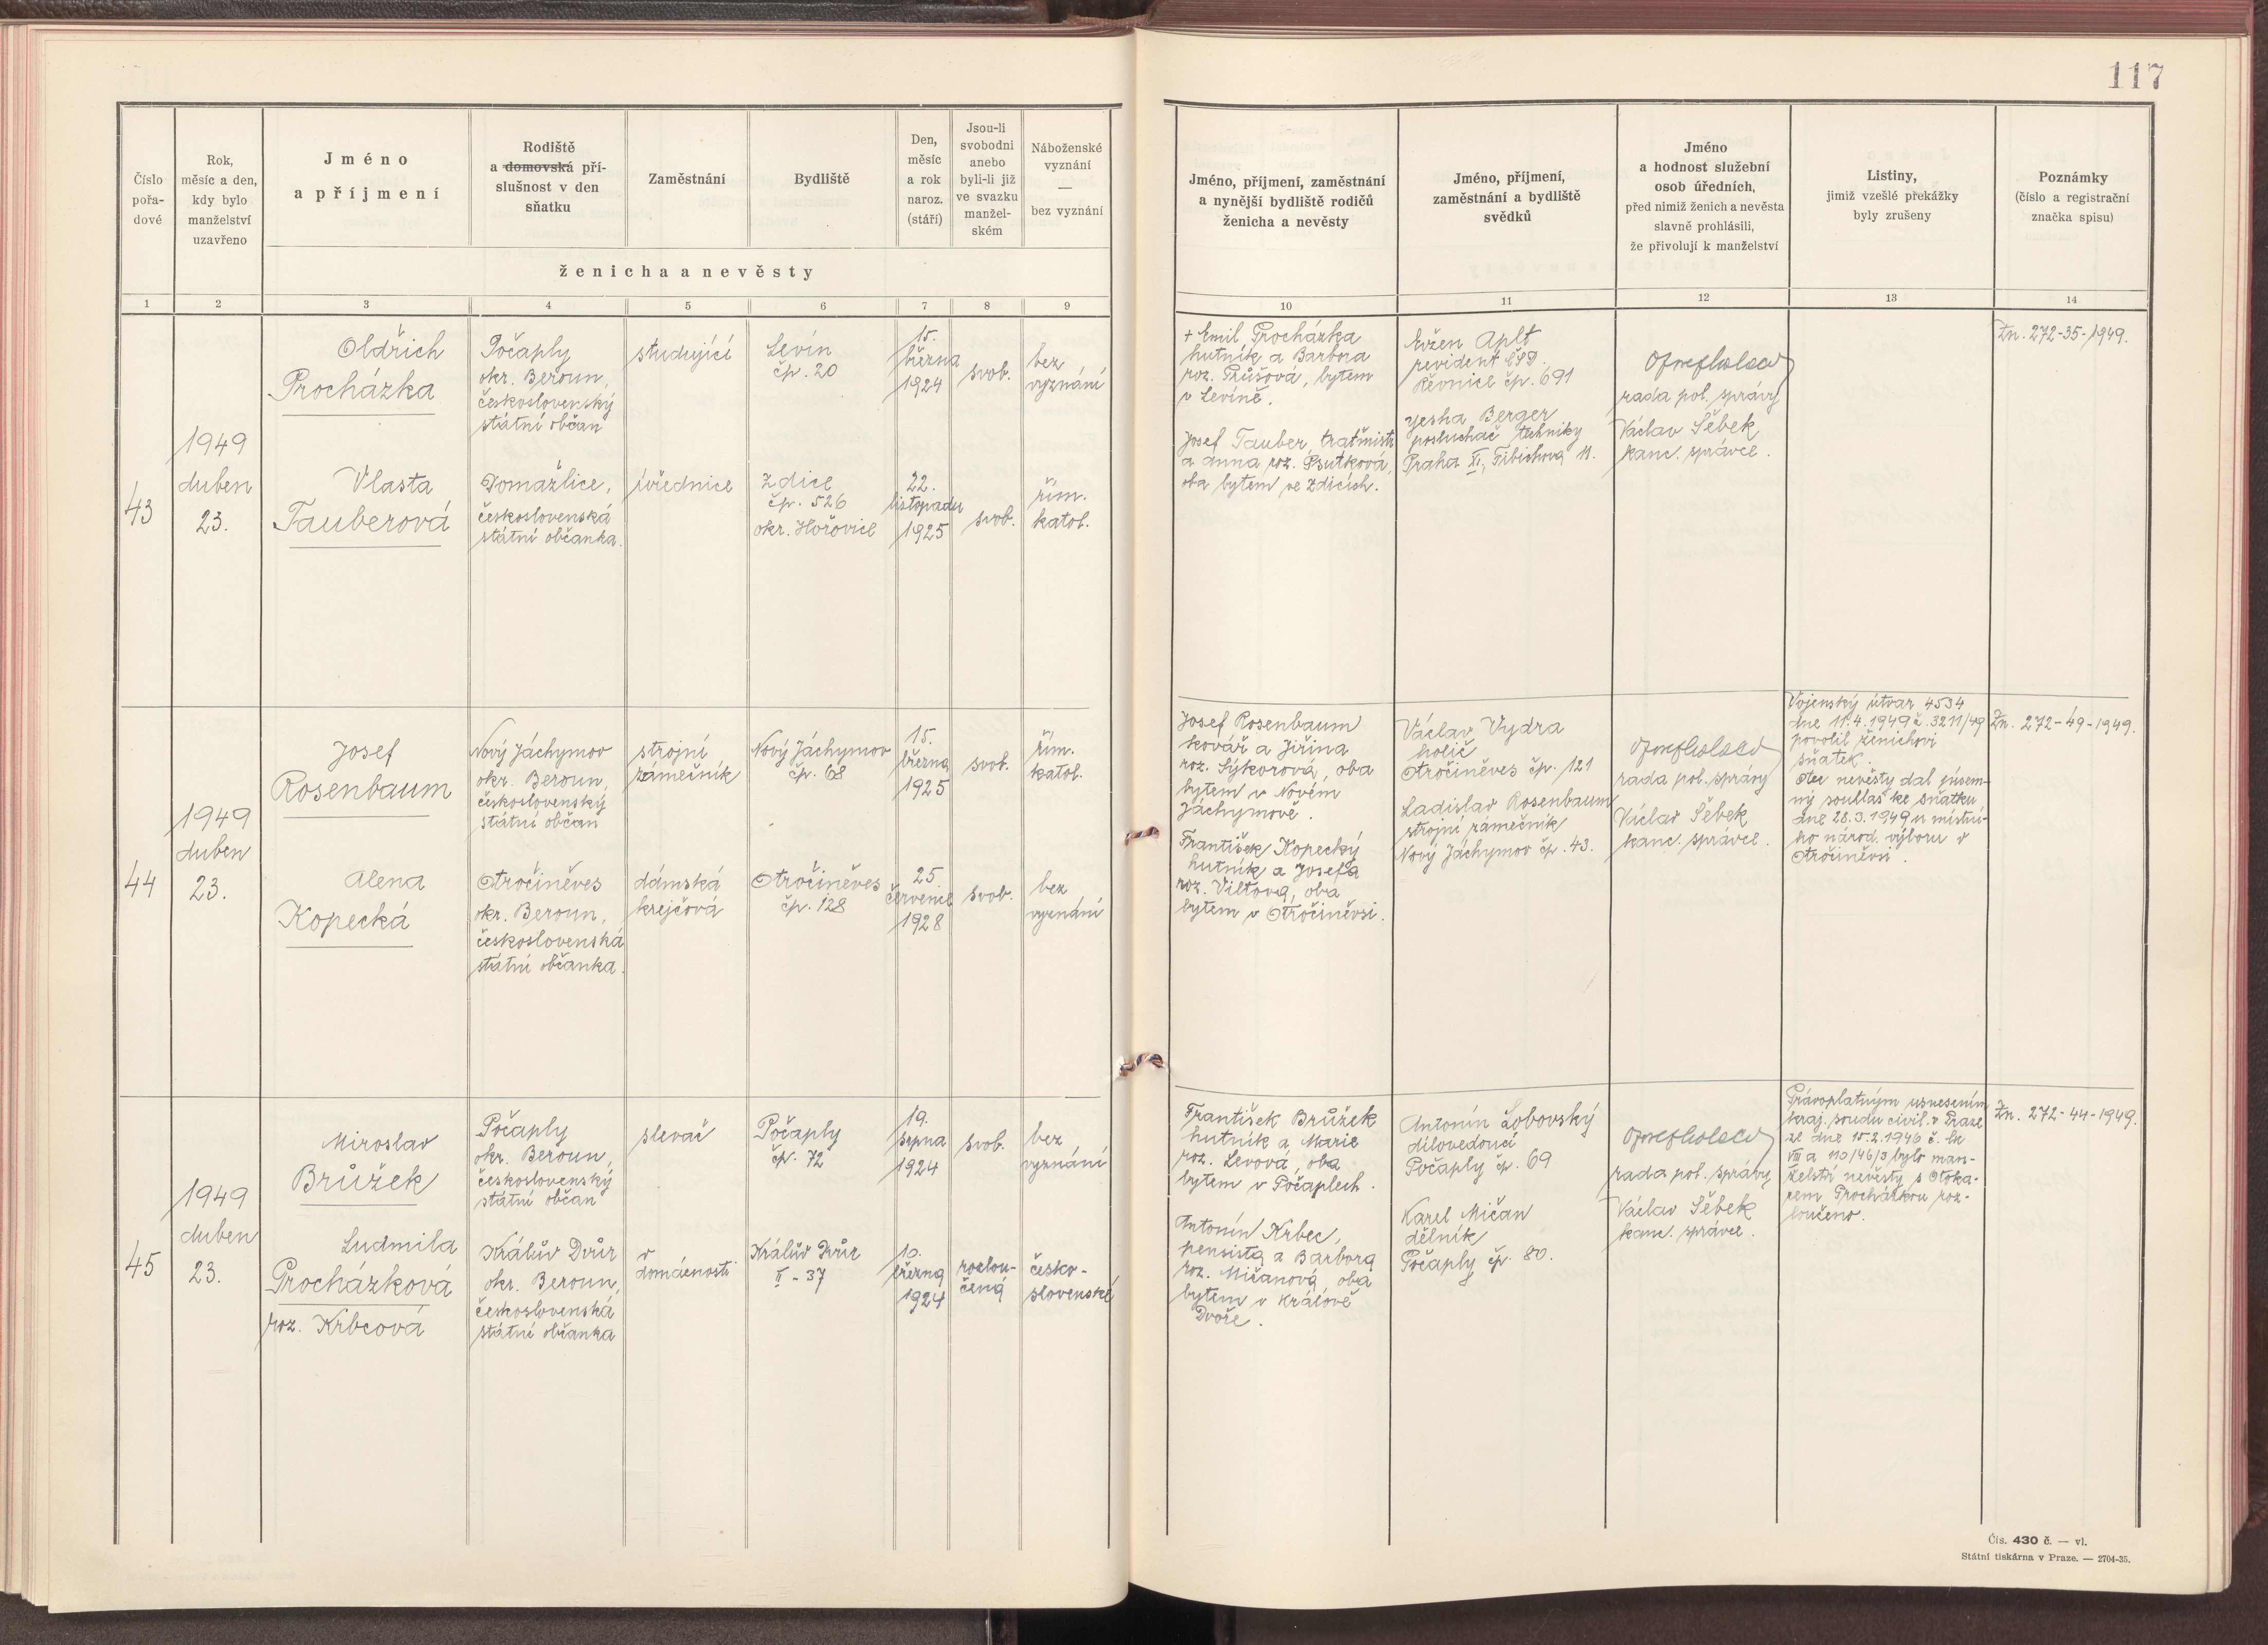 117
Číslo
pořa-
dové
Rok,
měsíc a den,
kdy bylo
manželství
uzavřeno
Jméno
a příjmení
Rodiště
a domovská pří-
slušnost v den
sňatku
Zaměstnání
Bydliště
Den,
měsíc
a rok
naroz.
(stáří)
Jsou-li
svobodni
anebo
byli-li již
ve svazku
manžel-
ském
Náboženské
vyznání
—
bez vyznání
ženicha a nevěsty
Jméno, příjmení, zaměstnání
a nynější bydliště rodičů
ženicha a nevěsty
Jméno, příjmení,
zaměstnání a bydliště
svědků
Jméno
a hodnost služební
osob úředních,
před nimiž ženich a nevěsta
slavně prohlásili,
že přivolují k manželství
Listiny,
jimiž vzešlé překážky
byly zrušeny
Poznámky
(číslo a registrační
značka spisu)
1 2 3 4 5 6 7 8 9 10 11 12 13 14
43
1949
duben
23.
Oldřich
Procházka
Počaply
okr. Beroun,
československý
státní občan
studující
Levín
čp. 20
15.
března
1924
svob.
bez
vyznání
Vlasta
Tauberová
Domažlice,
československá
státní občanka.
úřednice
Zdice
čp. 526
okr. Hořovice
22.
listopadu
1925
svob.
řím.
katol.
+ Emil Procházka
hutník a Barbora
roz. Průšová, bytem
v Levíně.
Josef Tauber, traťmistr
a Anna roz. Psutková,
oba bytem ve Zdicích.
Evžen Aplt
revident ČSD.
Řevnice čp. 691
Jesha Berger
posluchač techniky
Praha XI, Fibichova 11.
rada pol. správy
Václav Šebek
kanc. správce.
Zn. 272-35-1949.
44
1949
duben
23.
Josef
Rosenbaum
Nový Jáchymov
okr. Beroun,
československý
státní občan
strojní
zámečník
Nový Jáchymov
čp. 68
15.
března
1925
svob.
řím.
katol.
Alena
Kopecká
Otročiněves
okr. Beroun,
československá
státní občanka.
dámská
krejčová
Otročiněves
čp. 128
25.
července
1928
svob.
bez
vyznání
Josef Rosenbaum
kovář a Jiřina
roz. Sýkorová, oba
bytem v Novém
Jáchymově.
František Kopecký
hutník a Josefa
roz. Viltová, oba
bytem v Otročiněvsi.
Václav Vydra
holič
Otročiněves čp. 121
Ladislav Rosenbaum
strojní zámečník
Nový Jáchymov čp. 43.
rada pol. správy
Václav Šebek
kanc. správce.
Vojenský útvar 4534
dne 11.4.1949 č. 3211/49
povolil ženichovi
sňatek.
Otec nevěsty dal písem-
ný souhlas ke sňatku
dne 28.3.1949 u místní-
ho národ. výboru v
Otročiněvsi.
Zn. 272-49-1949.
45
1949
duben
23.
Miroslav
Brůžek
Počaply
okr. Beroun,
československý
státní občan
slevač
Počaply
čp. 72
19.
srpna
1924
svob.
bez
vyznání
Ludmila
Procházková
roz. Krbcová
Králův Dvůr
okr. Beroun,
československá
státní občanka
v
domácnosti
Králův Dvůr
II - 37
10.
března
1924
rozlou-
čená
česko-
slovenské
František Brůžek
hutník a Marie
roz. Levová, oba
bytem v Počaplech.
Antonín Krbec,
pensista a Barbora
roz. Mičanová, oba
bytem v Králově
Dvoře.
Antonín Lobovský
dílovedoucí
Počaply čp. 69
Karel Mičan
dělník
Počaply čp. 80.
rada pol. správy
Václav Šebek
kanc. správce.
Právoplatným usnesením
kraj. soudu civil. v Praze
ze dne 15.2.1946 č. Ck
VIII a 110/46/3 bylo man-
želství nevěsty s Otoka-
rem Procházkou roz-
loučeno.
Zn. 272-44-1949.
Čís. 430 č. — vl.
Státní tiskárna v Praze. — 2704-35.